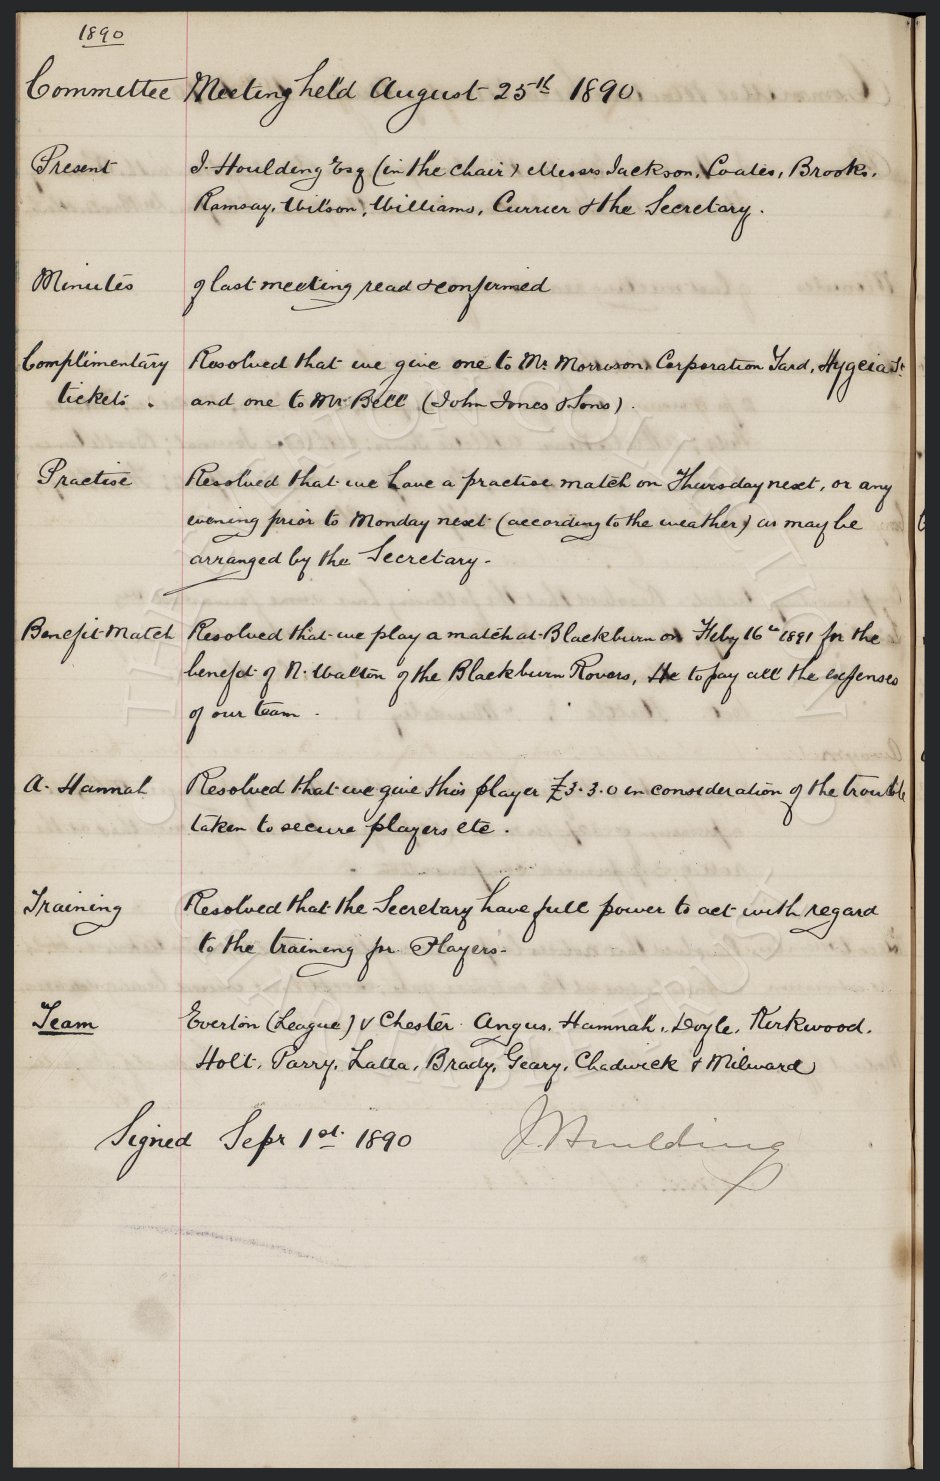 1890
Committee Meeting held August 25th 1890.
Present J. Houlding Esq (in the chair) Messrs Jackson, Coates, Brooks,
Ramsay, Wilson, Williams, Currier & the Secretary.
Minutes of last meeting read & confirmed
Complimentary Resolved that we give one to Mr. Morrison, Corporation Yard, Hygeia St.
tickets. and one to Mr Bell (John Jones & Sons).
Practise Resolved that we have a practise match on Thursday next, or any
evening prior to Monday next (according to the weather) as may be
arranged by the Secretary.
Benefit Match Resolved that we play a match at Blackburn on Feby 16th 1891 for the
benefit of N. Walton of the Blackburn Rovers, He to pay all the expenses
of our team.
A. Hannah Resolved that we give this player £3.3.0 in consideration of the trouble
taken to secure players etc.
Training Resolved that the Secretary have full power to act with regard
to the training for Players.
Team Everton (League) v Chester. Angus, Hannah, Doyle, Kirkwood,
Holt, Parry, Latta, Brady, Geary, Chadwick & Milward
Signed Sepr 1st. 1890 J. Houlding